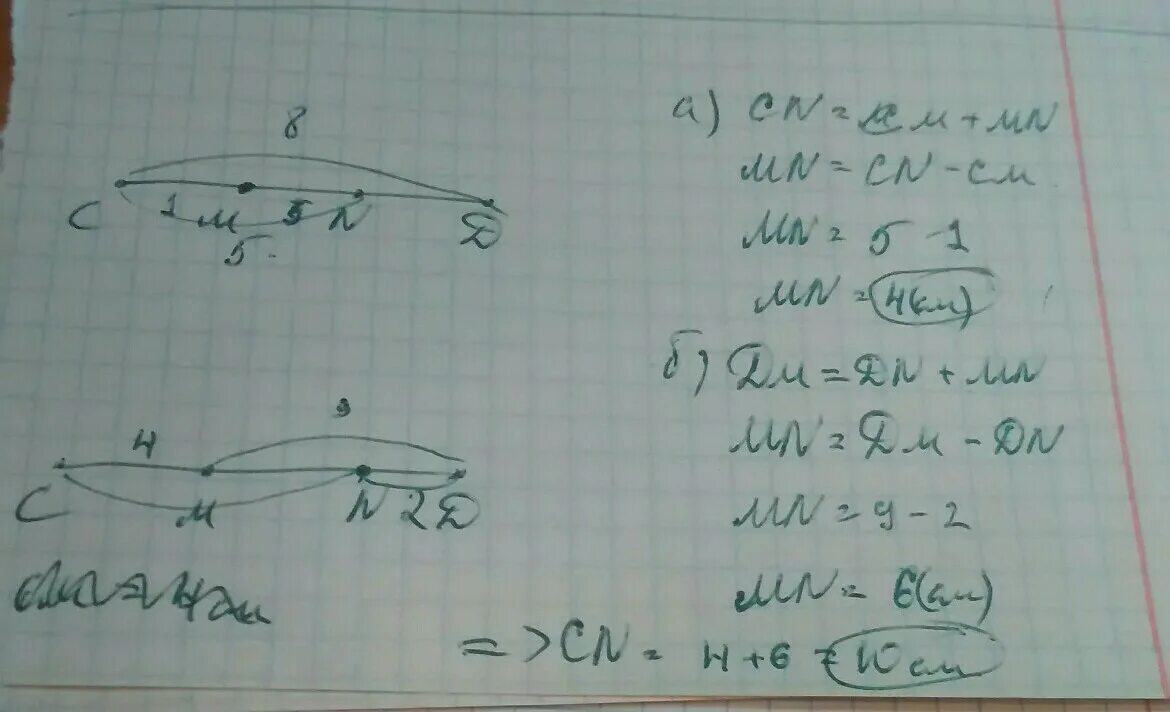 8
C 1 M 5 N D
5
а) CN = CM + MN
MN = CN - CM
MN = 5 - 1
MN = 4(см)
4 9
C M N 2 D
б) DM = DN + MN
MN = DM - DN
MN = 9 - 2
MN = 6(см)
=> CN = 4 + 6 = 10 см